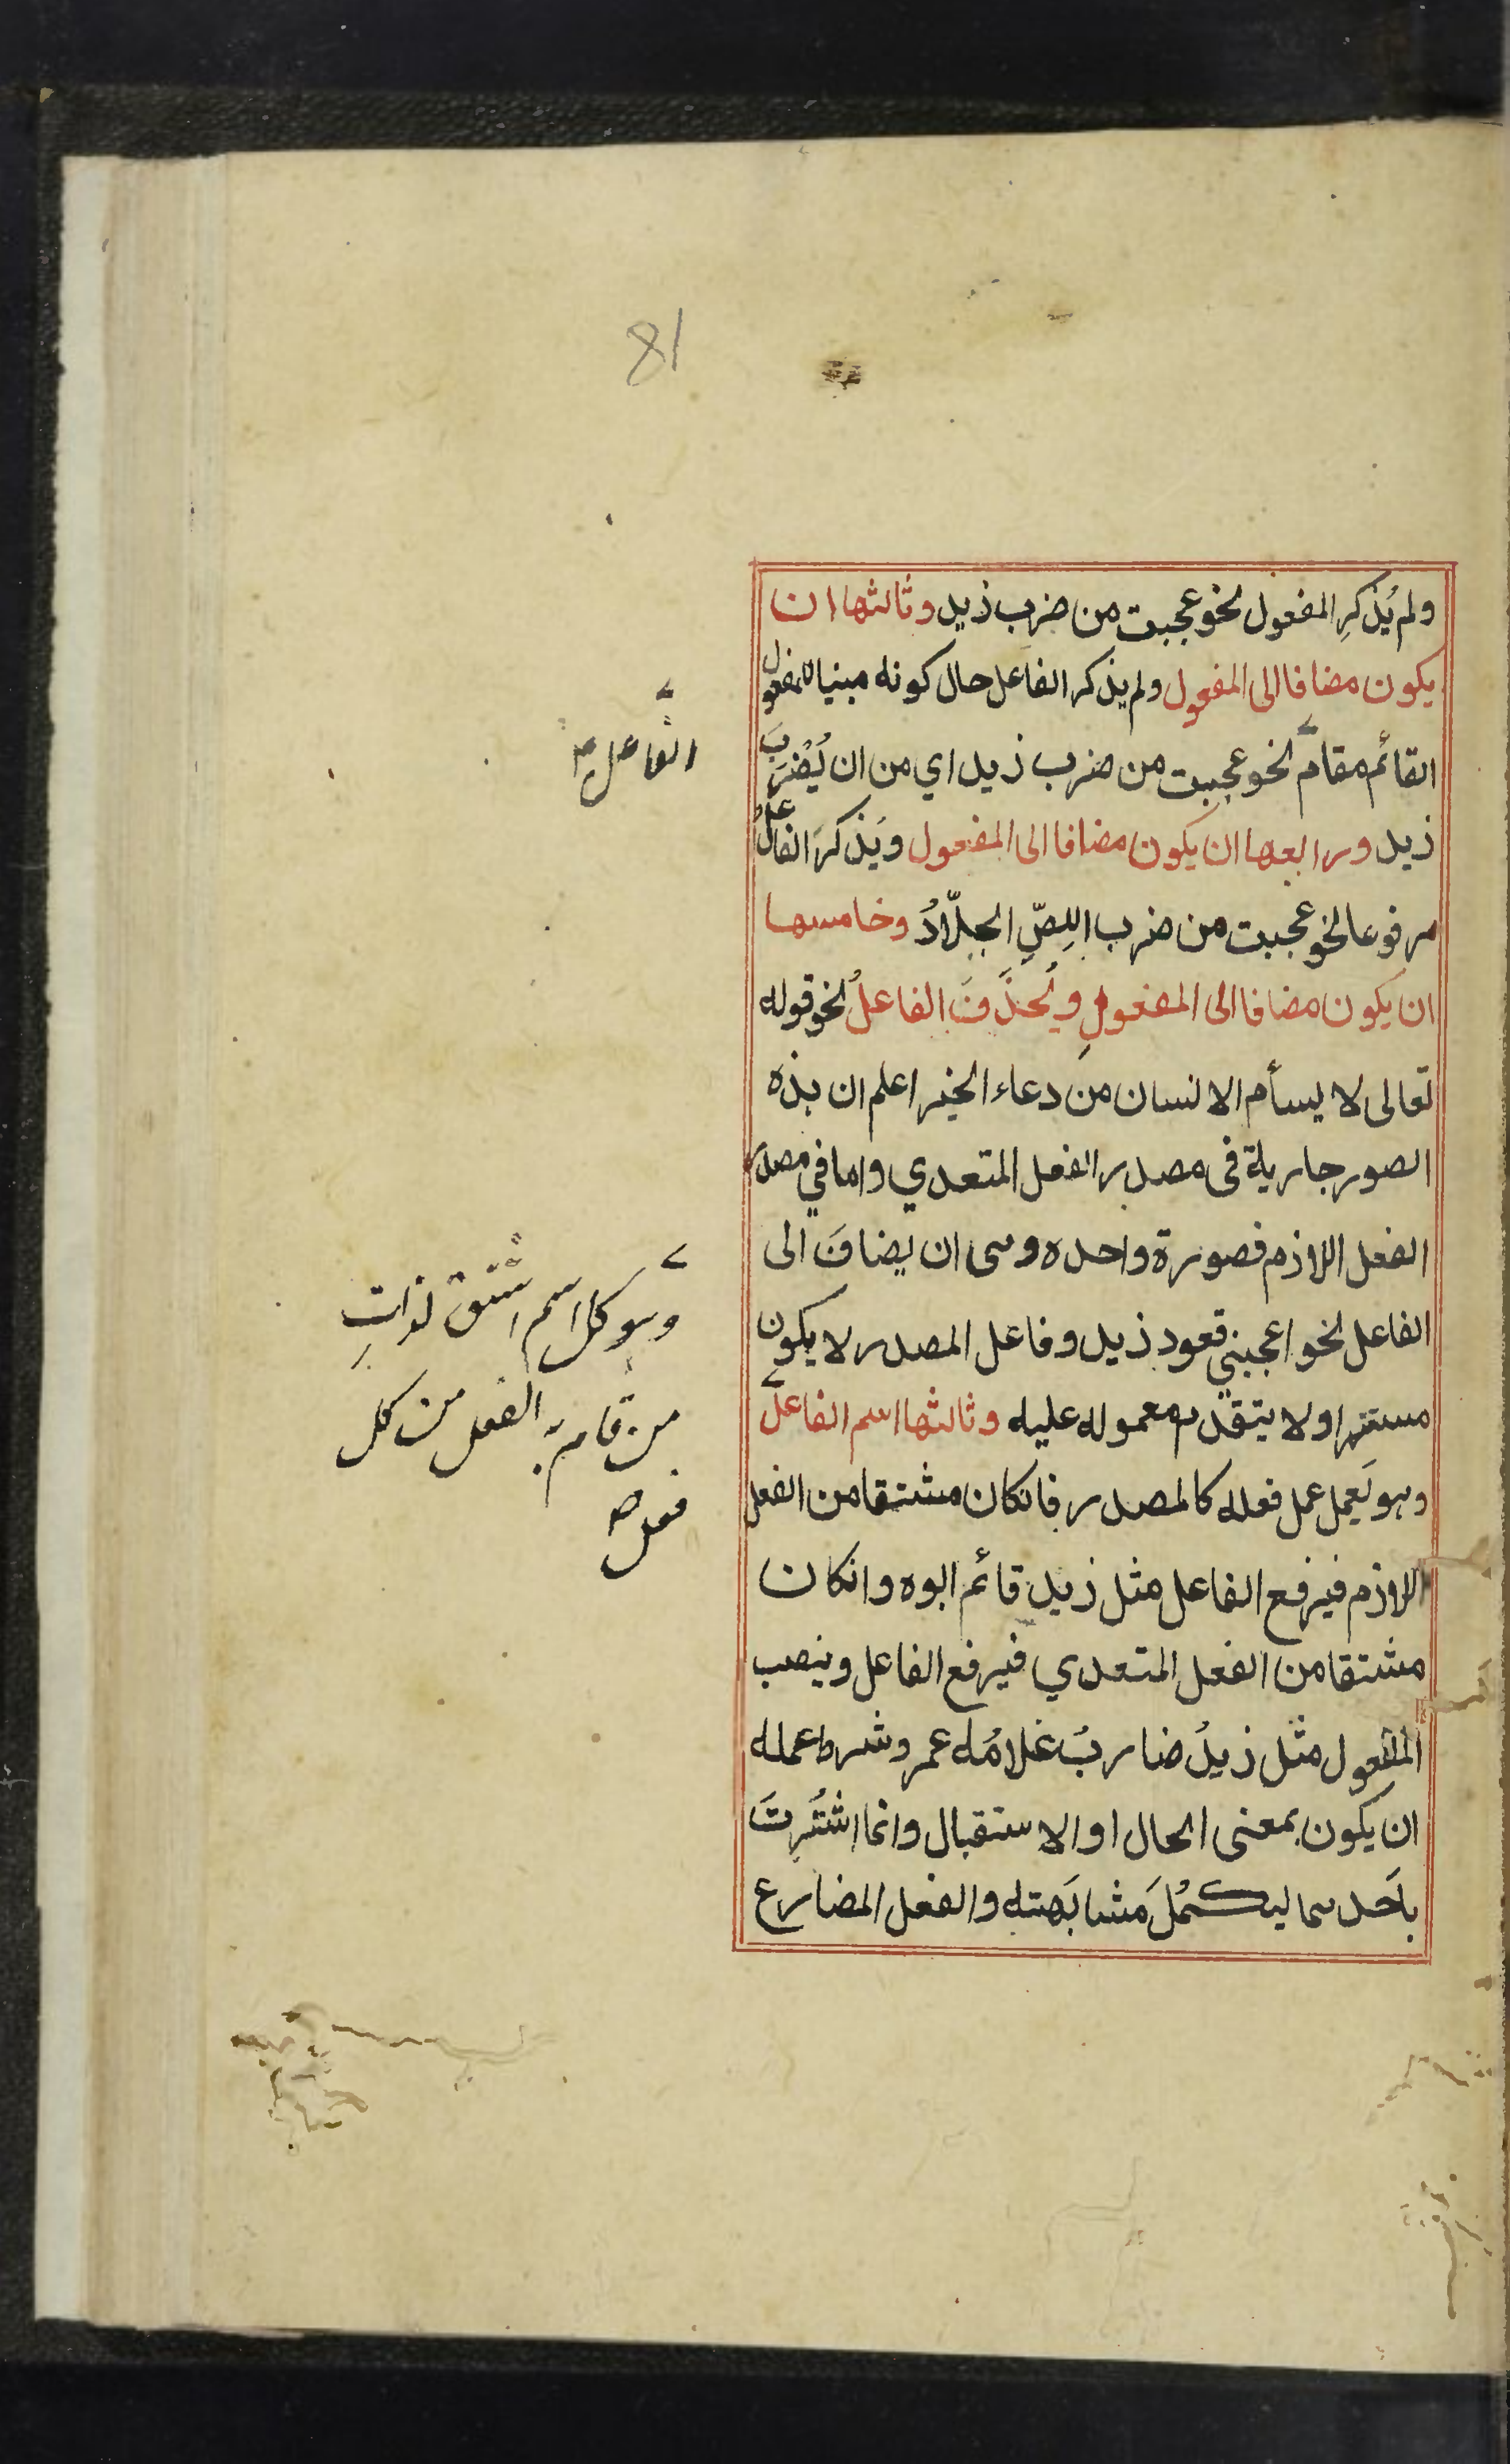 81
ولم يُذكرِ المفعول نحو عجبت من ضرب زيد وثالثها ان
يكون مضافا الى المفعول ولم يذكر الفاعل حال كونه مبنيا للمفعول
القائم مقامَ نحو عجبت من ضرب زيد اي من ان يُضْرَبَ
زيد ورابعها ان يكون مضافا الى المفعول ويَذكرَ الفاعل
مرفوعا نحو عجبت من ضرب اللِصِّ الجلّادُ وخامسها
ان يكون مضافا الى المفعولِ ويُحذَفَ الفاعلُ نحو قوله
تعالى لا يسأم الانسان من دعاء الخير اعلم ان هذه
الصور جارية فى مصدر الفعل المتعدي واما في مصدر
الفعل اللازم فصورة واحده وهى ان يضافَ الى
الفاعل نحو اعجبني قعود زيد وفاعل المصدر لا يكون
مستترا ولا يتقدم معموله عليه وثالثها اسم الفاعل
وهو يَعمل عمل فعله كالمصدر فانكان مشتقا من الفعل
اللازم فيرفع الفاعل مثل زيد قائم ابوه وانكان
مشتقا من الفعل المتعدي فيرفع الفاعل وينصب
المفعول مثل زيدُ ضاربُ غلامُه عمر وشرط عمله
ان يكون بمعنى الحال او الاستقبال وانما اشتُرِتَ
باَحدهما ليكمُلَ مَشابَهته والفعل المضارع
الفاعل
وهو كل اسم اشتق لذاتِ
من قام به الفعل من كل
فعل